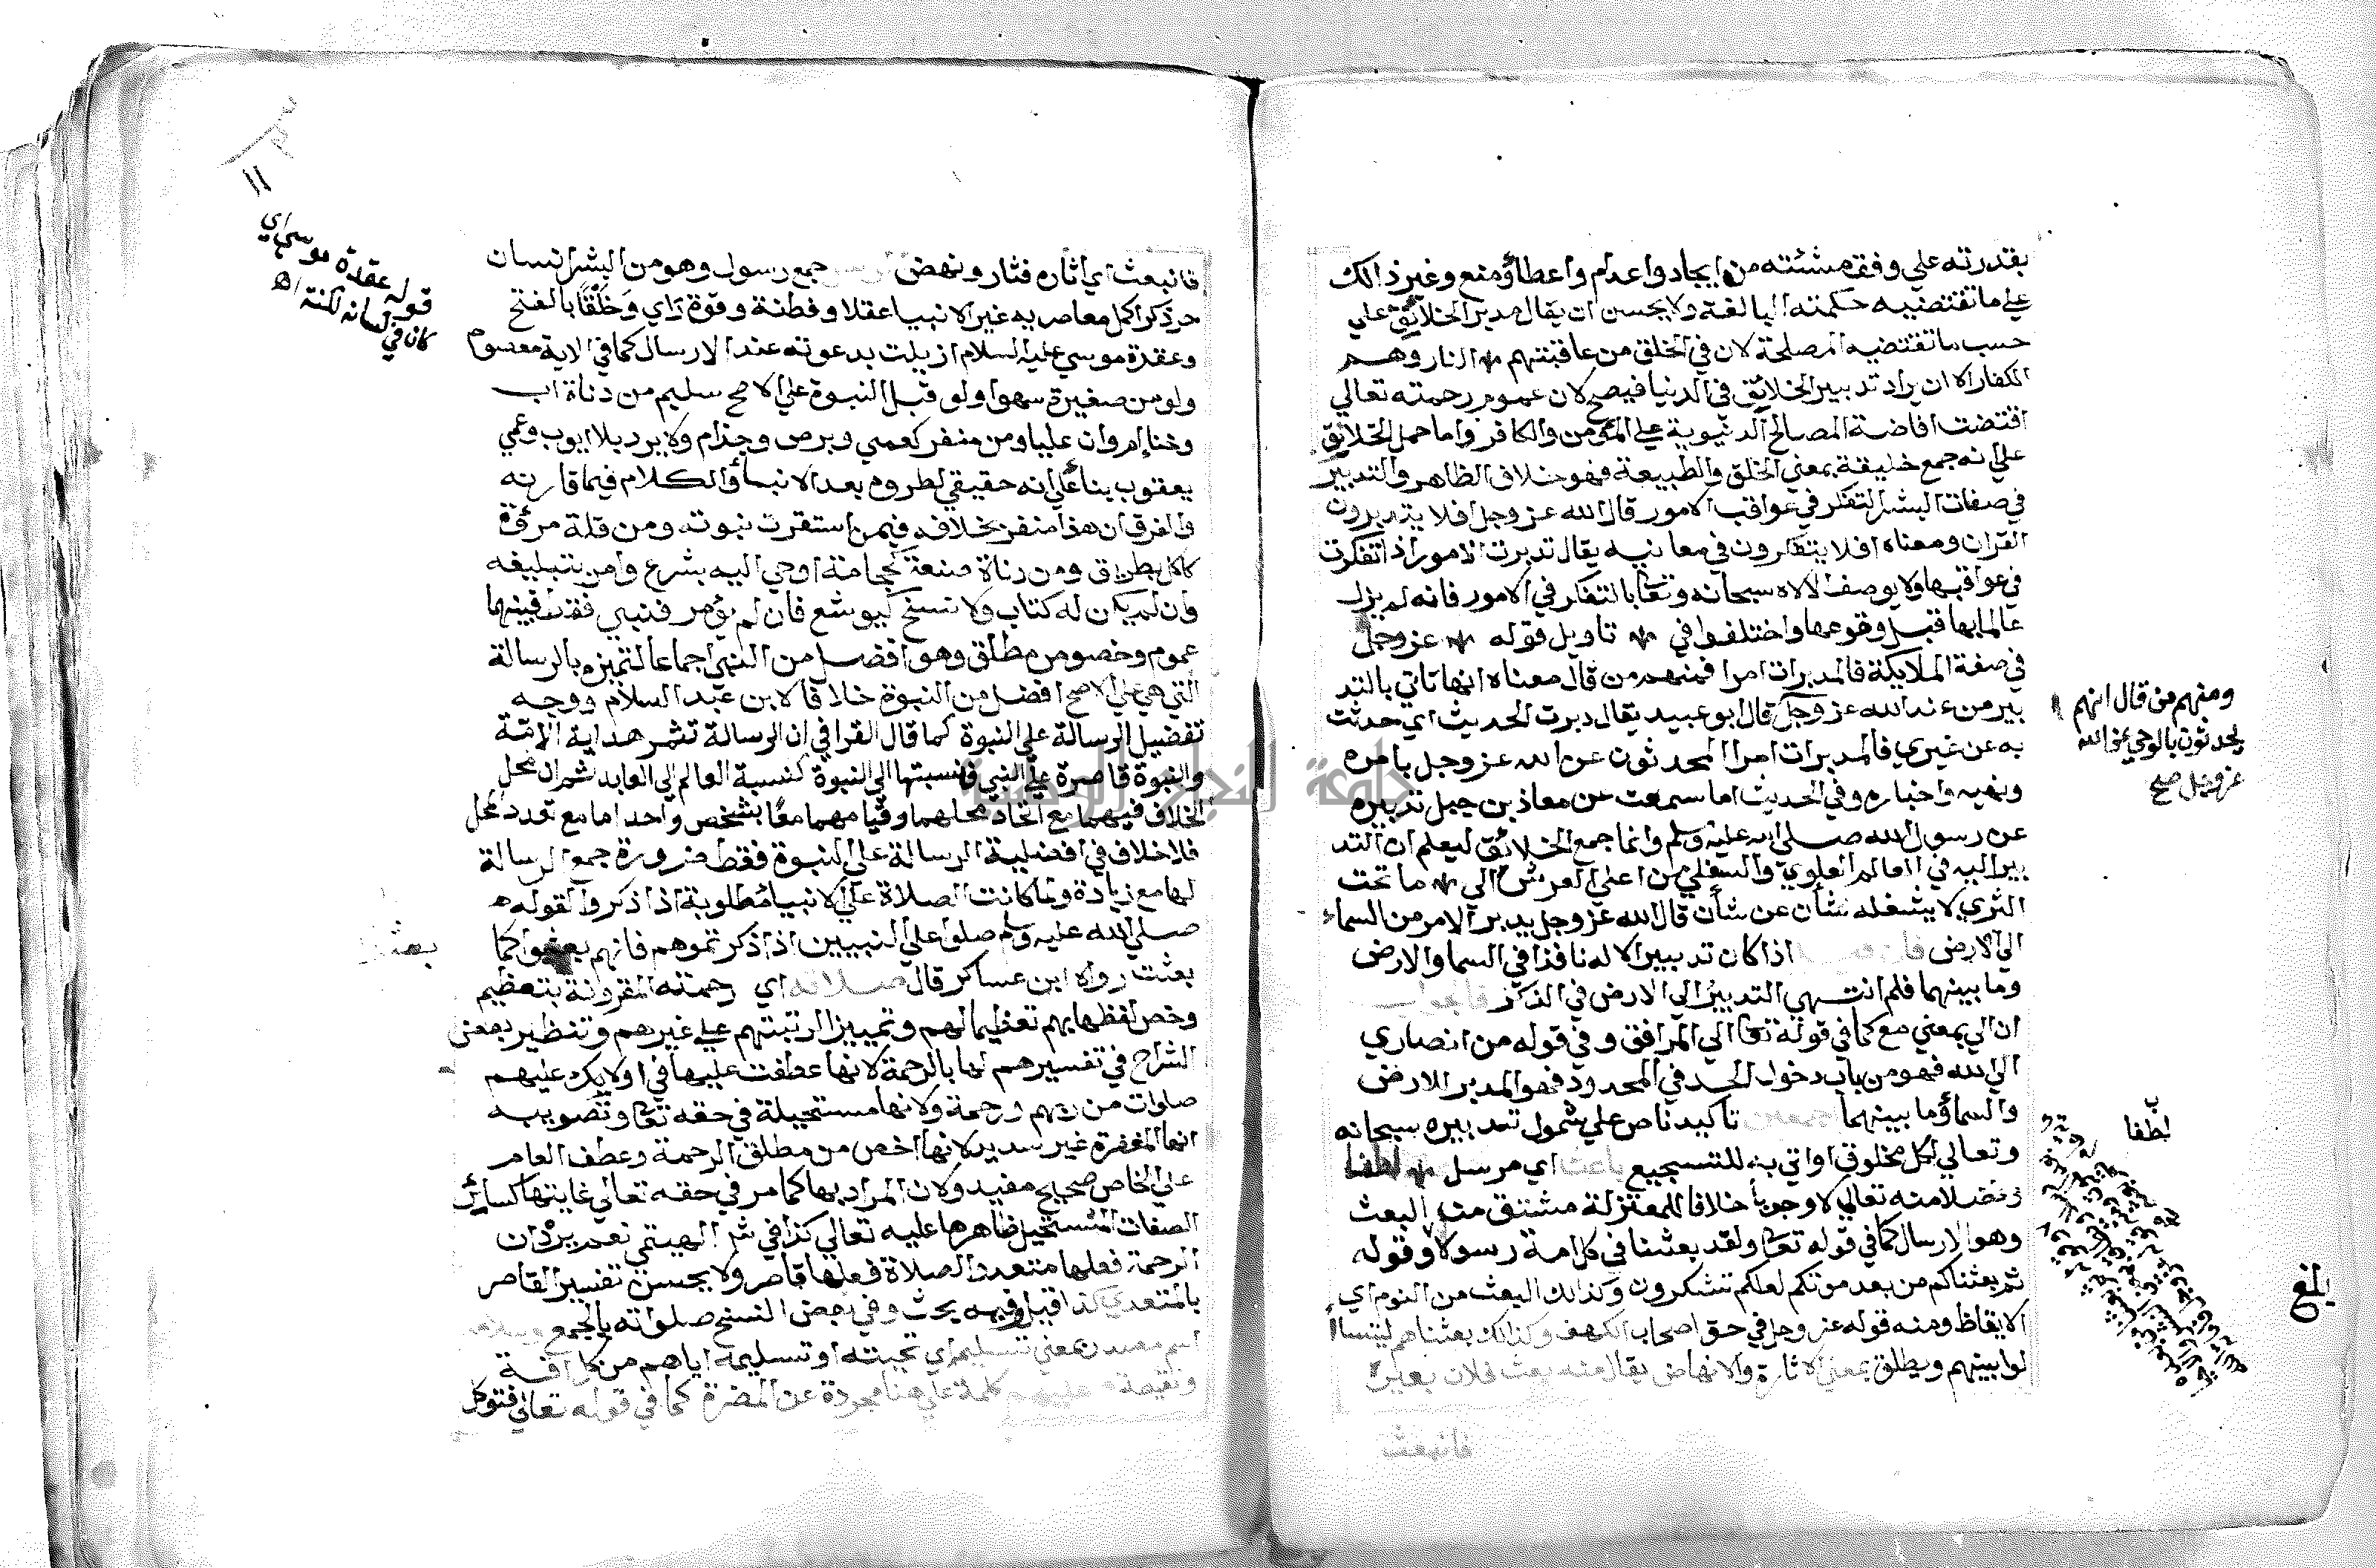 بقدرته علي وفق مشئته من ايجاد واعدام واعطاؤمنع وغير ذالك
علي ما تقتضيه حكمته البالغة ولا يحسن ان يقال مدبر الخلائق علي
حسب ما تقتضيه المصلحة لان في الخلق من عاقبتهم النار وهم
الكفار الا ان يراد تدبير الخلائق في الدنيا فيصح لان عموم رحمته تعالي
اقتضت افاضة المصالح الدنيوية علي المؤمن والكافر واما حمل الخلائق
علي انه جمع خليقة بمعني الخلق والطبيعة فهو خلاف الظاهر والتدبير
في صفات البشر التفكر في عواقب الامور قال الله عز وجل افلا يتدبرون
القران ومعناه افلا يتفكرون في معانيه يقال تدبرت الامور اذا تفكرت
في عواقبها ولا يوصف الاله سبحانه وتعا بالتفكر في الامور فانه لم يزل
عالما بها قبل وقوعها واختلفوا في تاويل قوله عز وجل
في صفة الملايكة فالمدبرات امرا فمنهم من قال معناه انها تاتي بالتد
بير من عند الله عز وجل قال ابو عبيد يقال دبرت الحديث اي حدثت
به عن غيري فالمدبرات امرا المحدثون عن الله عز وجل بامره
ونهيه واخباره وفي الحديث اما سمعت من معاذ بن جبل تدبيره
عن رسول الله صلي الله عليه وسلم وانما جمع الخلائق ليعلم ان التد
بير اليه في العالم العلوي والسفلي من اعلي العرش الي ما تحت
الثري لا يشغله شأن عن شأن قال الله عز وجل يدبر الامر من السماء
الي الارض فان اذا كان تدبير الاله نافذا في السما والارض
وما بينهما فلم انتهي التدبير الي الارض في الذكر فالجواب
ان الي بمعني مع كما في قوله تعا الي المرافق وفي قوله من انصاري
الي الله فهو من باب دخول الحد في المحدود فهو المدبر للارض
والسماؤما بينهما اجمعين تاكيد ناص علي شمول تدبيره سبحانه
وتعالي لكل مخلوق اواتي به للتسجيع باعث اي مرسل لطفا
وفضلا منه تعالي لا وجوبا خلافا للمعتزلة مشتق من البعث
وهو الارسال كما في قوله تعا ولقد بعثنا في كل امة رسولا وقوله
ثم بعثناكم من بعد موتكم لعلكم تشكرون وكذالك البعث من النوم اي
الايقاظ ومنه قوله عز وجل في حق اصحاب الكهف وكذالك بعثناهم ليتسأ
لوا بينهم ويطلق بمعني الاثارة والانهاض يقال منه بعث فلان بعيره
فانبعث
ومنهم من قال انهم
يحدثون بالوحي عن الله
عز وجل صح
لطفا
بلغ
فانبعث اي اثاره فثار ونهض جمع رسول وهو من البشر انسان
حر ذكر اكمل معاصريه غير الانبيا عقلا وفطنة وقوة راي وخلقا بالفتح
وعقدة موسي عليه السلام ازيلت بدعوته عند الارسال كما في الاية معصوم
ولو من صغيرة سهوا ولو قبل النبوة علي الاصح سليم من دناة اب
وخنا ام وان عليا ومن منفر كعمي وبرص وجذام ولا يرد بلا ايوب وعمي
يعقوب بنا علي انه حقيقي لطروه بعد الانبا والكلام فيما قارنه
والفرق ان هذا منفر بخلافه فيمن استقرت نبوته ومن قلة مرؤة
كاكل بطريق ومن دناة صنعة كحجامة اوحي اليه بشرع وامر بتبليغه
وان لم يكن له كتاب ولا نسخ كيوشع فان لم يؤمر فنبي فقط فبينهما
عموم وخصوص مطلق وهو افضل من النبي اجماعا لتميزه بالرسالة
التي هي علي الاصح افضل من النبوة خلافا لابن عبد السلام ووجه
تفضيل الرسالة علي النبوة كما قال القرافي ان الرسالة تثمر هداية الامة
والنبوة قاصرة علي النبي فنسبتها الي النبوة كنسبة العالم الي العابد ثم ان محل
الخلاف فيهما مع اتحاد محلهما وقيامهما معا بشخص واحد اما مع تعدد محل
فلا خلاف في افضلية الرسالة علي النبوة فقط ضرورة جمع الرسالة
لها مع زيادة ولما كانت الصلاة علي الانبيا مطلوبة اذا ذكروا لقوله
صلي الله عليه وسلم صلوا علي النبيين اذا ذكرتموهم فانهم بعثوا كما
بعثت رواه ابن عساكر قال صلاته اي رحمته المقرونة بتعظيم
وخص لفظها بهم تعظيما لهم وتمييزا لرتبتهم علي غيرهم وتنظير بعض
الشراح في تفسيرهم لها بالرحمة لانها عطفت عليها في اوليك عليهم
صلوات من ربهم ورحمة ولانها مستحيلة في حقه تعا وتصويبه
انها المغفرة غير سديد لانها اخص من مطلق الرحمة وعطف العام
علي الخاص صحيح مفيد ولان المراد بها كما مر في حقه تعالي غايتها كسائر
الصفات المستحيل ظاهرها عليه تعالي كذا في شر الهيتمي نعم يرد ان
الرحمة فعلها متعد والصلاة فعلها قاصر ولا يحسن تفسير القاصر
بالمتعدي كذا قيل وفيه بحث وفي بعض النسخ صلواته بالجمع وسلامه
اسم مصدر بمعني تسليم اي تحيته او تسليمه اياهم من كل افة
ونقيصة عليهم كلمة علي هنا مجردة عن المضرة كما في قوله تعالي فتوكل
قوله عقدة موسي اي
كان في لسانه لكنة اه
١١